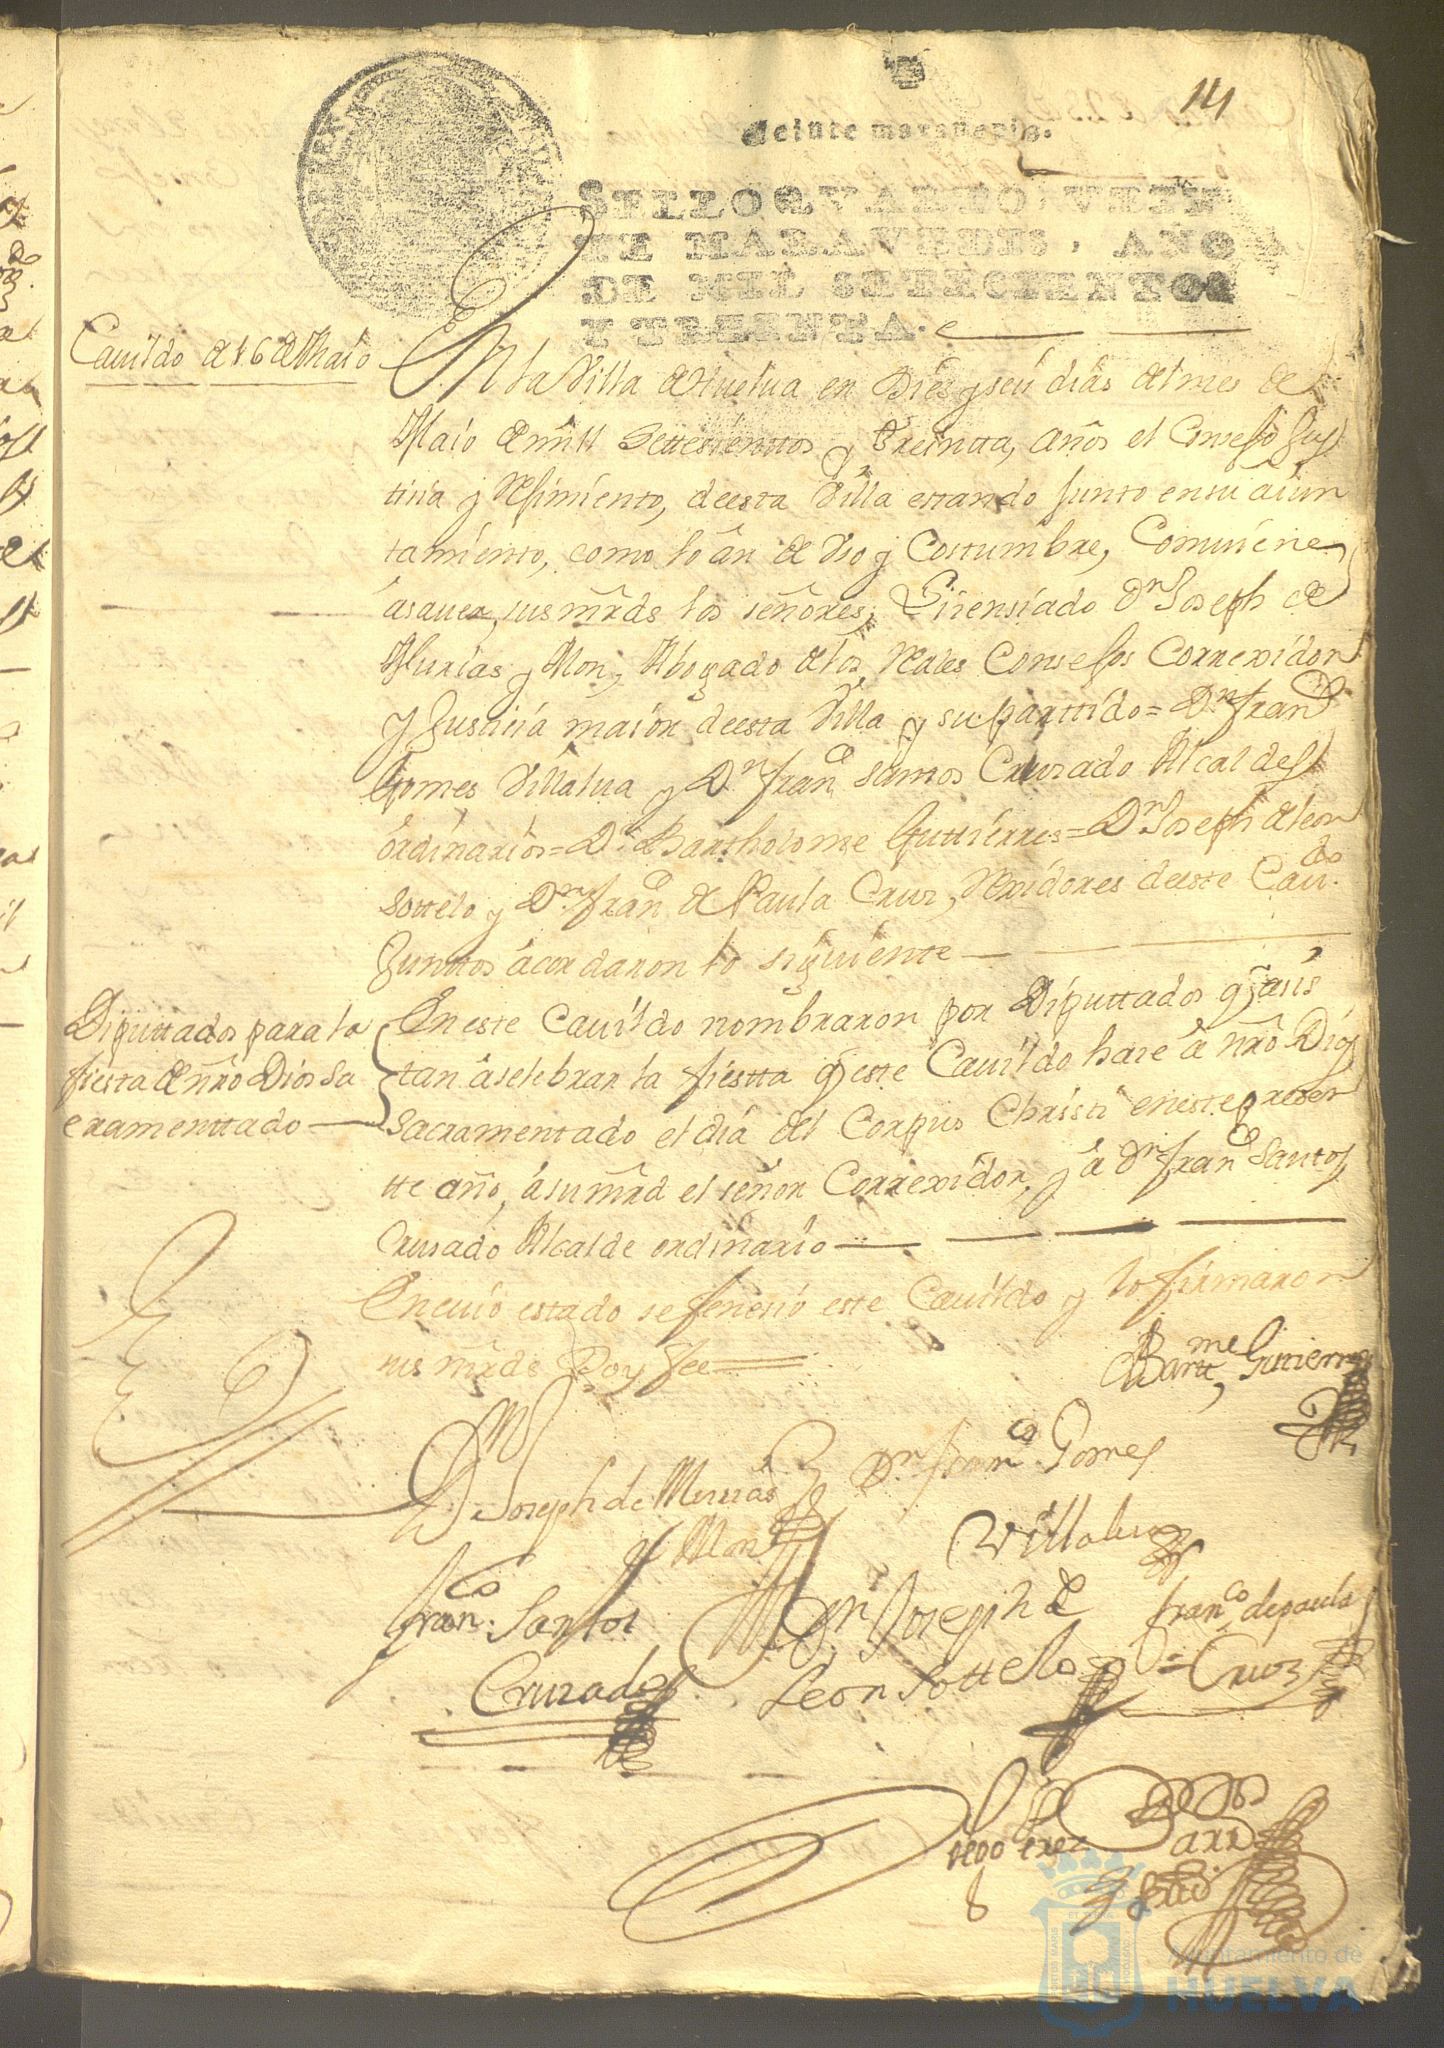 14
Veinte maravedis.
SELLO QVARTO, VEIN
TE MARAVEDIS, AÑO
DE MIL SETECIENTOS
Y TREINTA.
Cauildo de 16 de Maio
En la Villa de Huelua en Dies y seis dias del mes de
Maio de mill Settesienttos y treintta, años el Consejo Jus
ticia y Rejimiento, deesta Villa estando Junto ensu aiun
tamiento, como lo án de Vso y Costumbre, Comuiene
ásauer, sus mrds los señores, Lizensiado Dn Joseph de
Murias y Mon, Abogado delos Reales Consejos Correxidor
y Justicia maior deesta Villa y su parttido= Dn Franco
Gomes Villalua y Dn Franco Santos Crusado Alcaldes
órdinarios= Dn Bartholome Guttierres= Dn Joseph de leon
Sottelo y Dn Franco de Paula Crus, Rexidores deeste Caudo
Junttos ácordaron lo siguiente
Diputtados para la
fiesta de nro Dios Sa
cramenttado
En este Cauildo nombraron por Diputtados q asis
tan áselebrar la fiestta q este Cauildo hase á nro Dios
Sacramentado el dia del Corpus Christi eneste presen
tte año, ásu mrd el señor Correxidor, y á Dn Franco Santos
Crusado Alcalde ordinario
En cuio estado se fenesió este Cauildo y lo firmaron
sus mrds Doy fee
Bartme Gutierres
Dn Joseph de Murias
y Mon
Dn Franco Gomes
Villalua
Franco Santos
Cruzado
Dn Joseph de
Leon Sottelo
Franco de paula
Cruz
Diego Perez
Ayuntamiento de
HUELVA